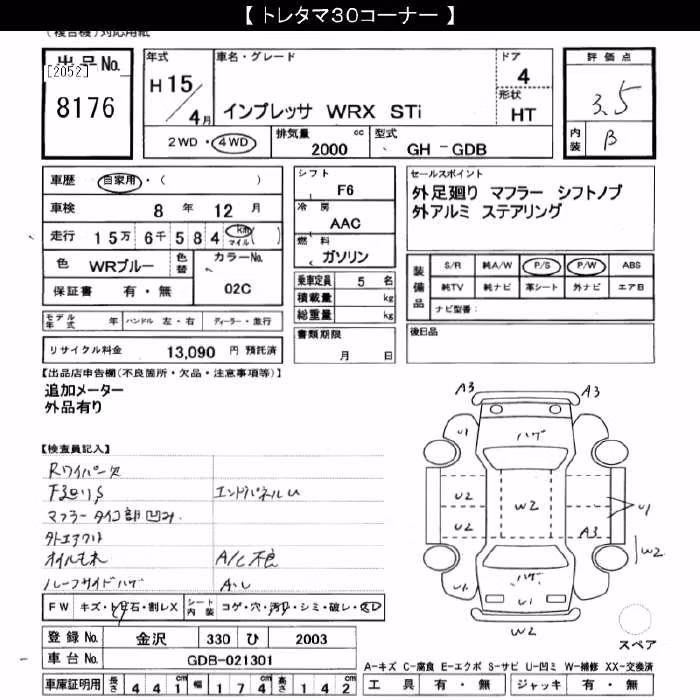 【 トレタマ30コーナー 】
(複合機)対応用紙
出品No.
[2052]
8176
年式
H15/4月
車名・グレード
インプレッサ WRX STi
ドア
4
形状
HT
2WD・4WD
排気量 2000 cc
型式 GH-GDB
評価点
3.5
内装 B
車歴 自家用・( )
車検 8年 12月
走行 15万 6千 584 km マイル ( )
色 WRブルー 色替
カラーNo. 02C
保証書 有・無
シフト
F6
冷房
AAC
燃料
ガソリン
乗車定員 5 名
積載量 kg
総重量 kg
書類期限
月 日
セールスポイント
外足廻り マフラー シフトノブ
外アルミ ステアリング
装備品
S/R 純A/W P/S P/W ABS
純TV 純ナビ 革シート 外ナビ エアB
ナビ型番:
後日品
モデル年式 年 ハンドル 左・右 ディーラー・並行
リサイクル料金 13,090 円 預託済
【出品店申告欄(不良箇所・欠品・注意事項等)】
追加メーター
外品有り
【検査員記入】
Rワイパー欠
F廻りS
エンドパネルU
マフラータイコ部凹み.
外エアクリ
オイルモレ
A/C不良
ルーフサイドハゲ
A・U
FW キズ・トビ石・割レX
シート内装 コゲ・穴・汚レ・シミ・破レ・
登録No. 金沢 330 ひ 2003
車台No. GDB-021301
車庫証明用 長さ 441 幅 174 高さ 142 cm
A3
A3
U1
ハゲ
U2
U2
W2
U1
A3
W2
U1
ハゲ
U1
W2
スペア
A-キズ C-腐食 E-エクボ S-サビ U-凹ミ W-補修 XX-交換済
工具 有・無 ジャッキ 有・無